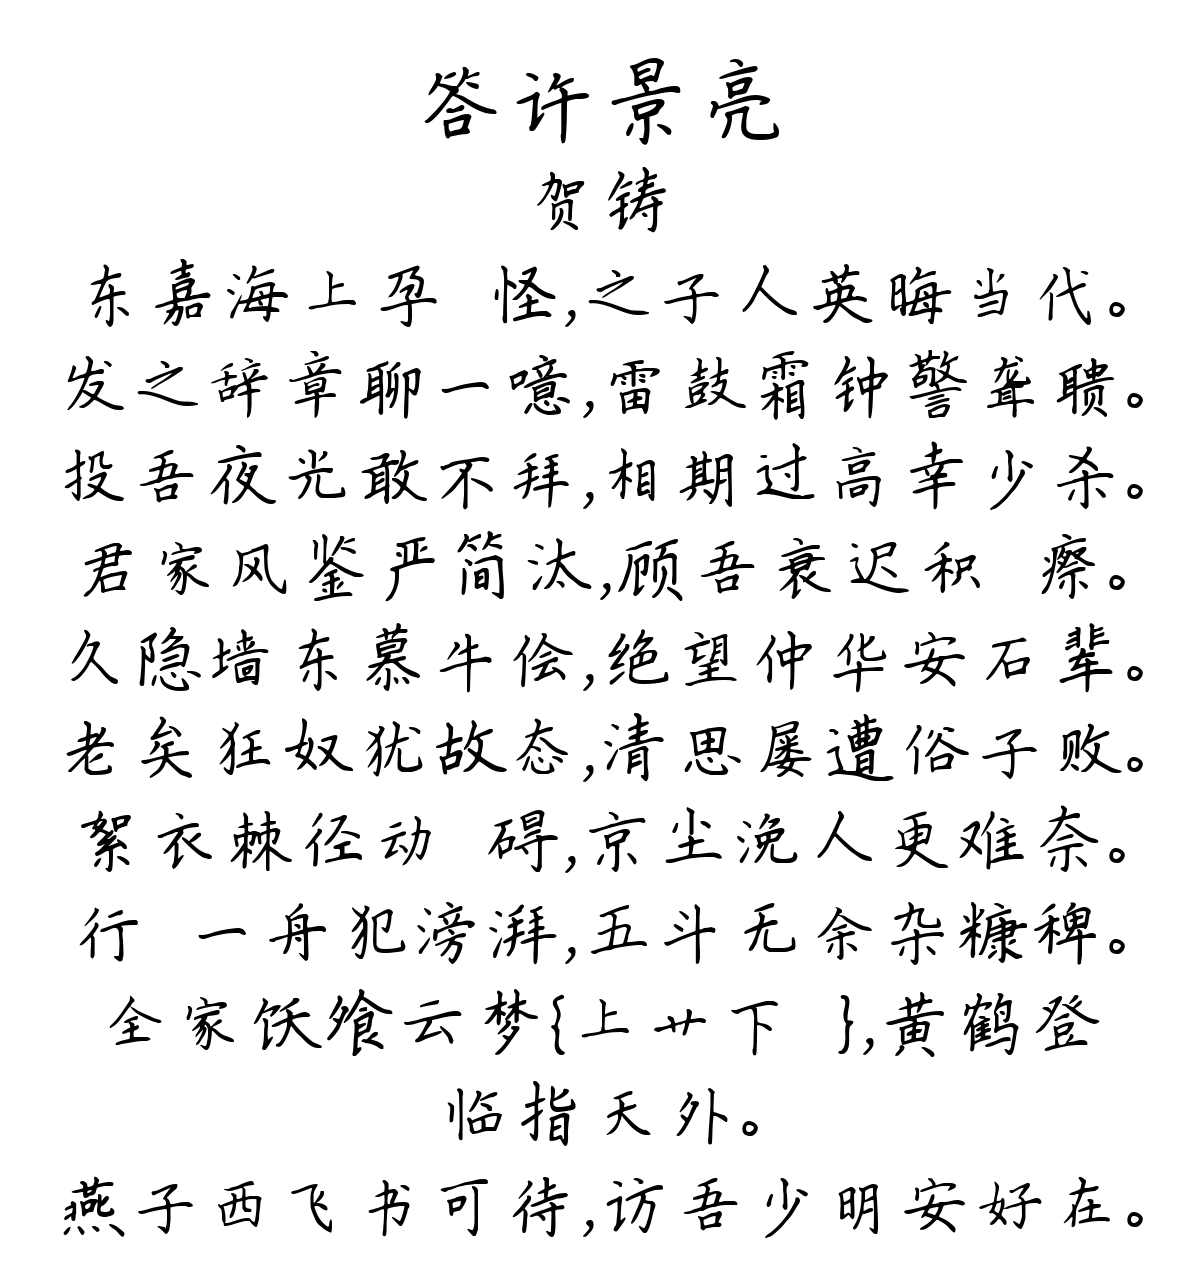 答许景亮
贺铸
东嘉海上孕 怪,之子人英晦当代。
发之辞章聊一噫,雷鼓霜钟警聋聩。
投吾夜光敢不拜,相期过高幸少杀。
君家风鉴严简汰,顾吾衰迟积 瘵。
久隐墙东慕牛侩,绝望仲华安石辈。
老矣狂奴犹故态,清思屡遭俗子败。
絮衣棘径动 碍,京尘浼人更难奈。
行 一舟犯滂湃,五斗无余杂糠稗。
全家饫飧云梦{上艹下 },黄鹤登
临指天外。
燕子西飞书可待,访吾少明安好在。